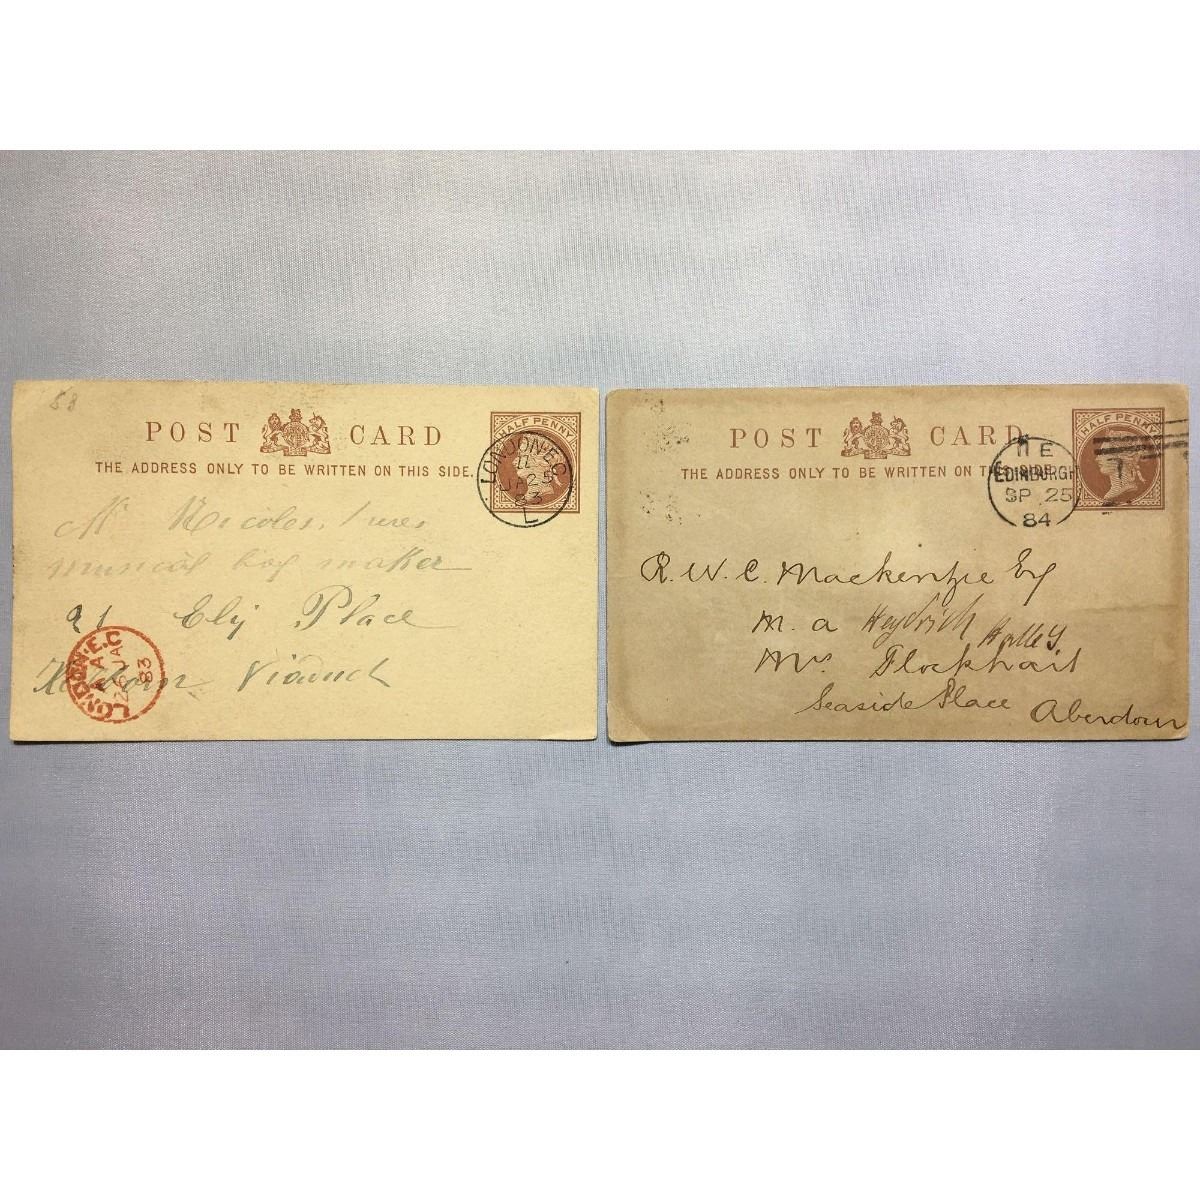 58
POST CARD
HALF PENNY
THE ADDRESS ONLY TO BE WRITTEN ON THIS SIDE.
LONDON·E.C
JA 25
83
L
Mr Nicoles
musical box maker
21 Ely Place
Holborn Viaduct
LONDON·E.C
A A
26 JA
83
POST CARD
HALF PENNY
THE ADDRESS ONLY TO BE WRITTEN ON THIS SIDE.
E
EDINBURGH
SP 25
84
R. W. C. Mackenzie Esq
Mrs Flockhart
Seaside Place Aberdour